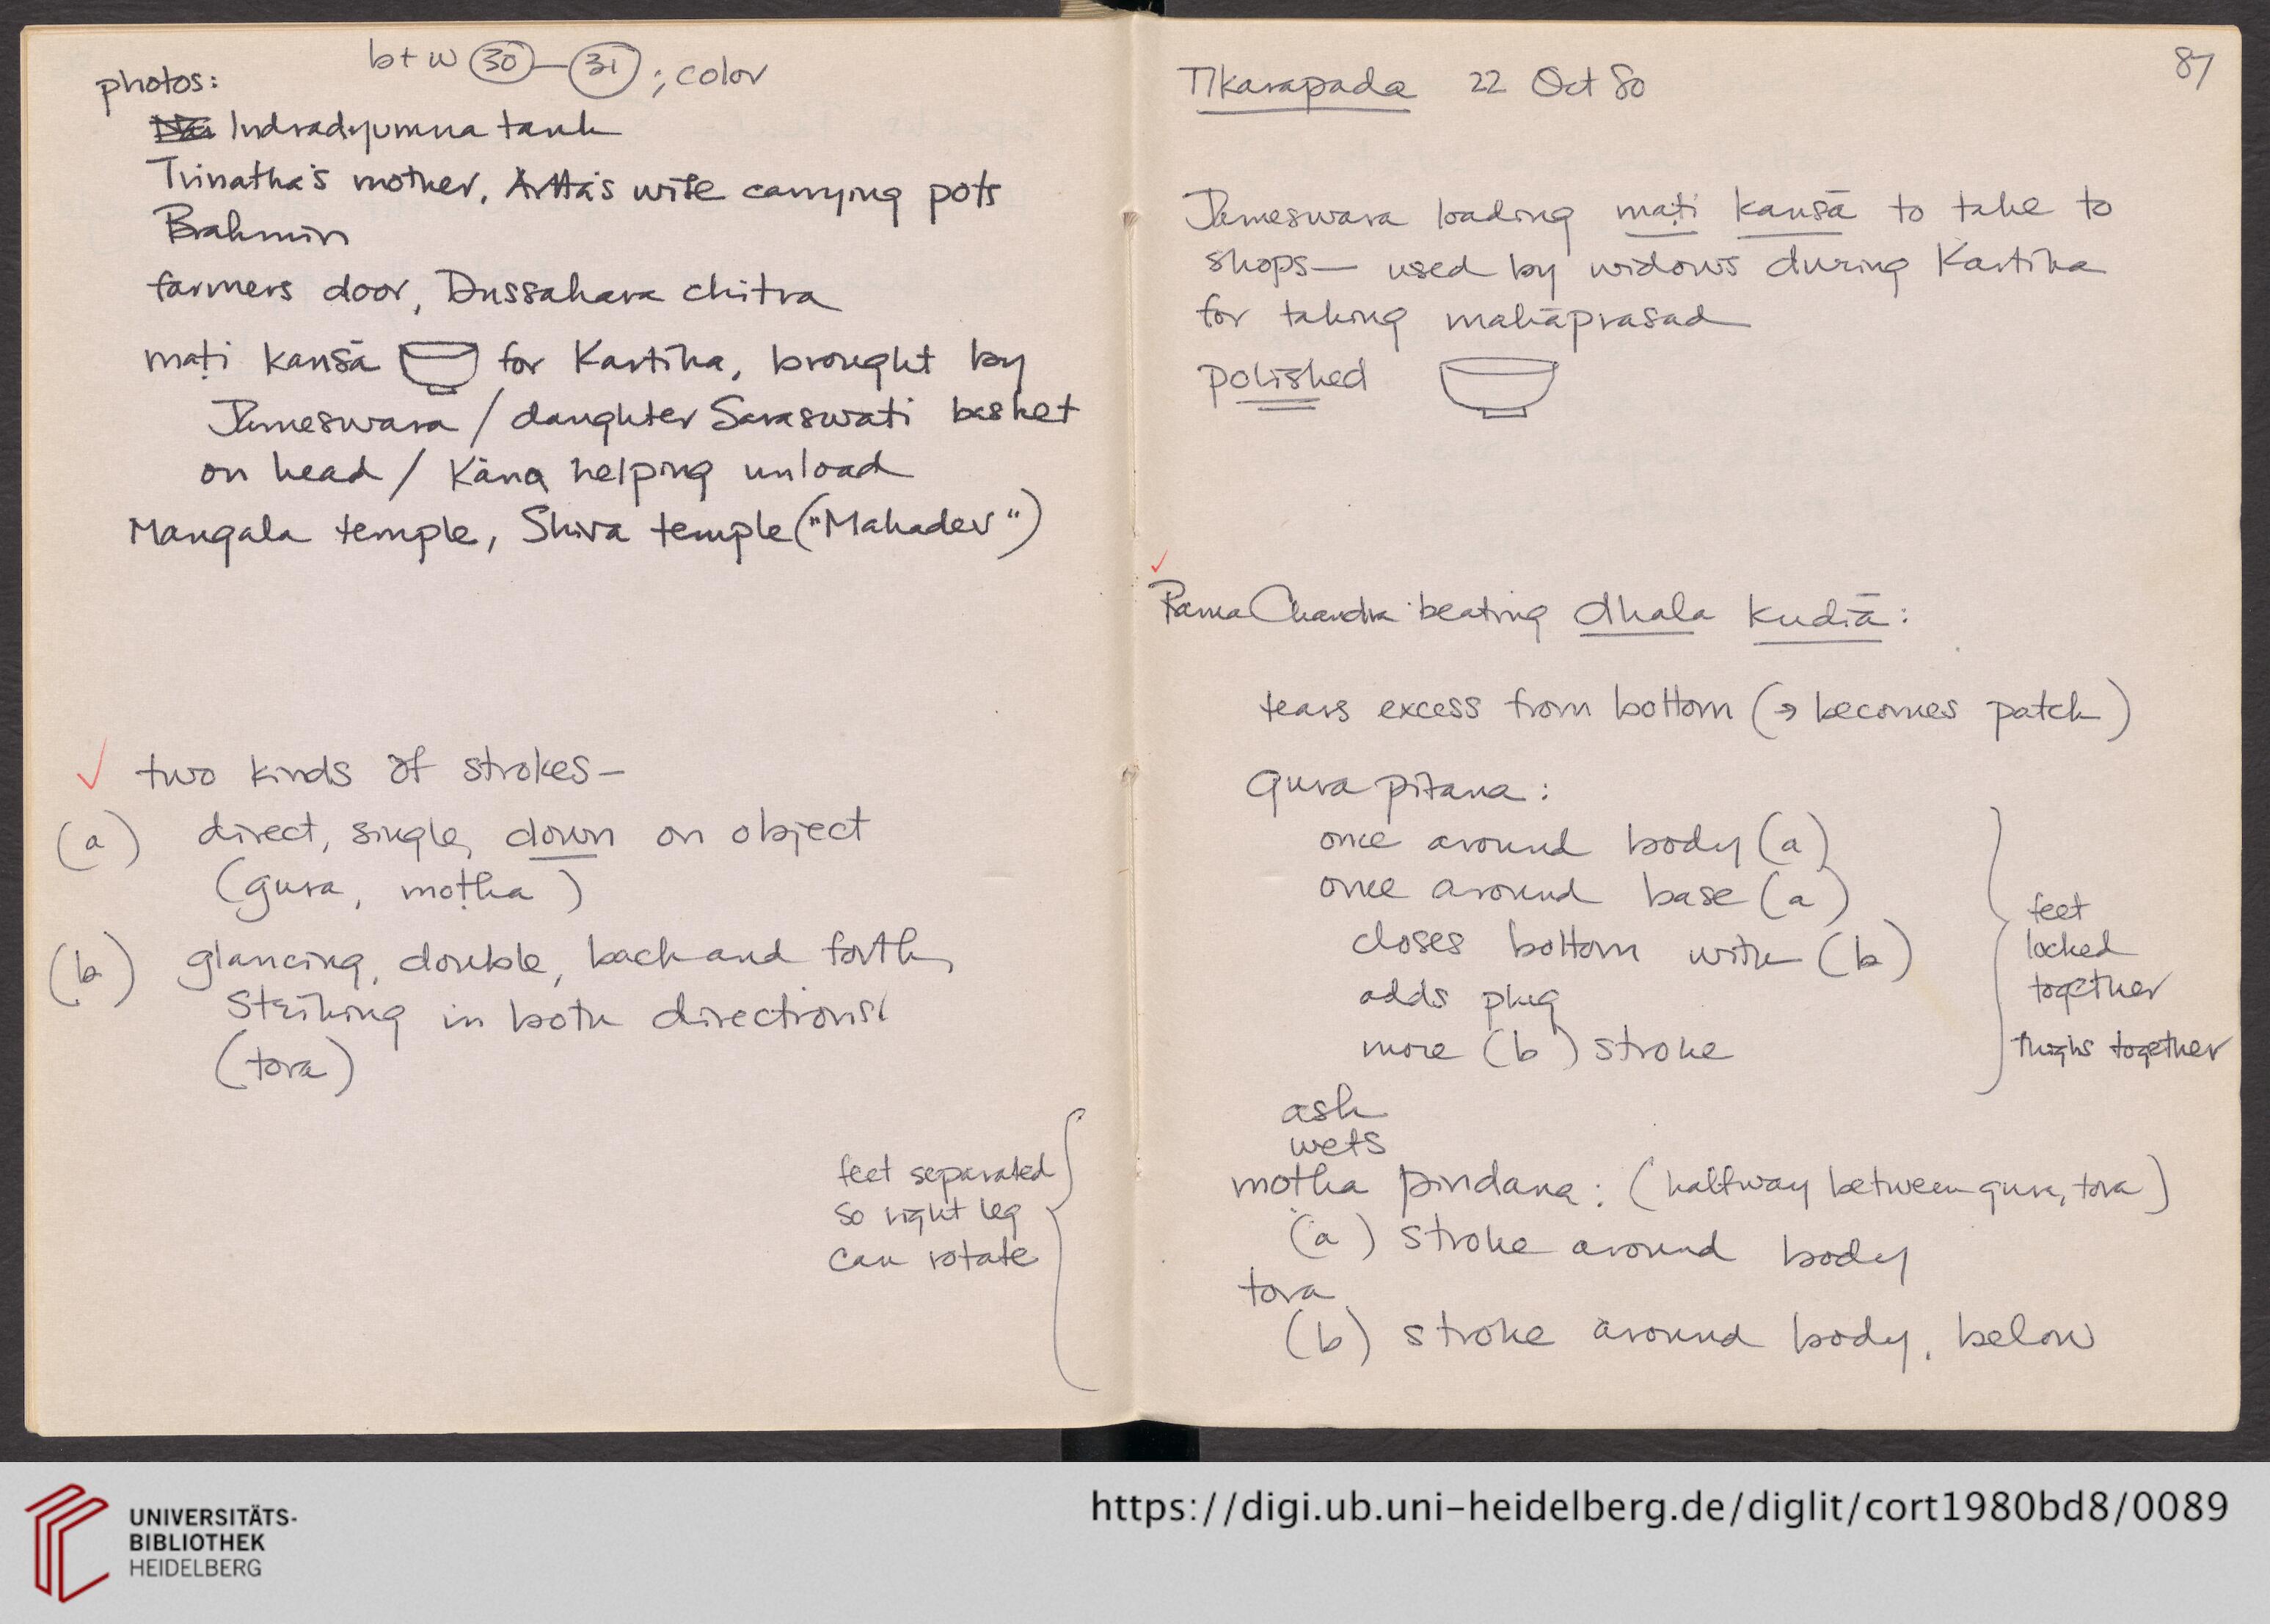 photos: b+w 30–31; color
Indradyumna tank
Trinatha's mother, Artta's wife carrying pots
Brahmin
farmers door, Dussahara chitra
maṭi kansā for Kartika, brought by
Dameswara / daughter Saraswati basket
on head / Kāna helping unload
Mangala temple, Shiva temple ("Mahadev")
two kinds of strokes—
(a) direct, single, down on object
(gura, moṭha)
(b) glancing, double, back and forth,
striking in both directions
(tora)
feet separated
so right leg
can rotate
Tikarapada 22 Oct 80
87
Dameswara loading maṭi kansā to take to
shops— used by widows during Kartika
for taking mahāprasad
polished
Rama Chandra beating dhala kudiā:
tears excess from bottom (→ becomes patch)
gura pitana:
once around body (a)
once around base (a)
closes bottom with (b)
adds plug
more (b) stroke
feet
locked
together
thighs together
ash
wets
motha pindana: (halfway between gura, tora)
(a) stroke around body
tora
(b) stroke around body, below
UNIVERSITÄTS-
BIBLIOTHEK
HEIDELBERG
https://digi.ub.uni-heidelberg.de/diglit/cort1980bd8/0089